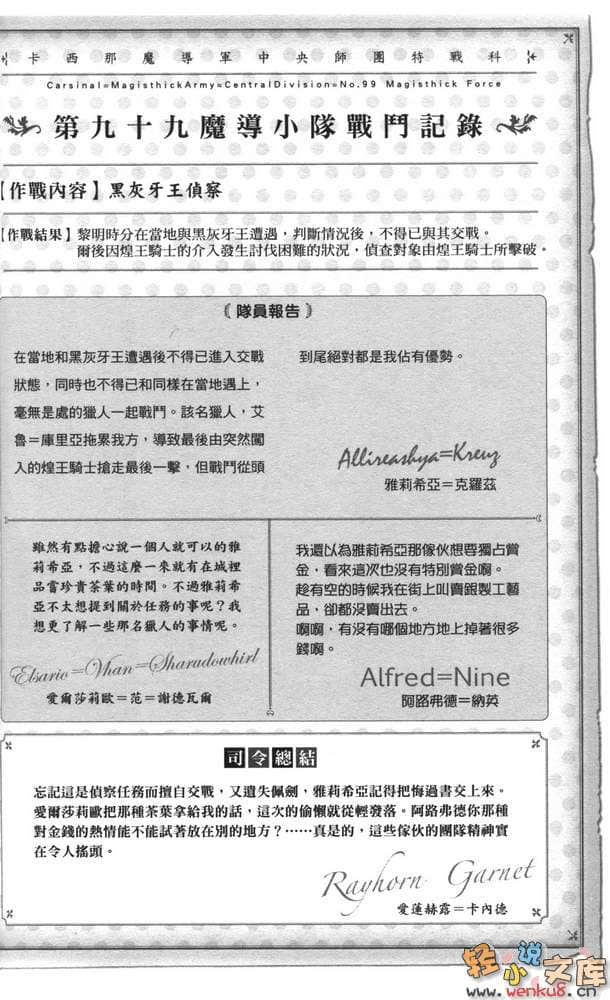 卡西那魔導軍中央師團特戰科
Carsinal=MagisthickArmy=CentralDivision=No.99 Magisthick Force
第九十九魔導小隊戰鬥記錄
【作戰內容】黑灰牙王偵察
【作戰結果】黎明時分在當地與黑灰牙王遭遇，判斷情況後，不得已與其交戰。
爾後因煌王騎士的介入發生討伐困難的狀況，偵查對象由煌王騎士所擊破。
《隊員報告》
在當地和黑灰牙王遭遇後不得已進入交戰
狀態，同時也不得已和同樣在當地遇上，
毫無是處的獵人一起戰鬥。該名獵人，艾
魯＝庫里亞拖累我方，導致最後由突然闖
入的煌王騎士搶走最後一擊，但戰鬥從頭
到尾絕對都是我佔有優勢。
Allireashya=Kreuz
雅莉希亞＝克羅茲
雖然有點擔心說一個人就可以的雅
莉希亞，不過這麼一來就有在城裡
品嘗珍貴茶葉的時間。不過雅莉希
亞不太想提到關於任務的事呢？我
想更了解一些那名獵人的事情呢。
Elsario=Vhan=Sharudowhirl
愛爾莎莉歐＝范＝謝德瓦爾
我還以為雅莉希亞那傢伙想要獨占賞
金，看來這次也沒有特別賞金啊。
趁有空的時候我在街上叫賣銀製工藝
品，卻都沒賣出去。
啊啊，有沒有哪個地方地上掉著很多
錢啊。
Alfred=Nine
阿路弗德＝納英
司令總結
忘記這是偵察任務而擅自交戰，又遺失佩劍，雅莉希亞記得把悔過書交上來。
愛爾莎莉歐把那種茶葉拿給我的話，這次的偷懶就從輕發落。阿路弗德你那種
對金錢的熱情能不能試著放在別的地方？⋯⋯真是的，這些傢伙的團隊精神實
在令人搖頭。
Rayhorn Garnet
愛蓮赫露＝卡內德
轻小说文库
www.wenku8.cn